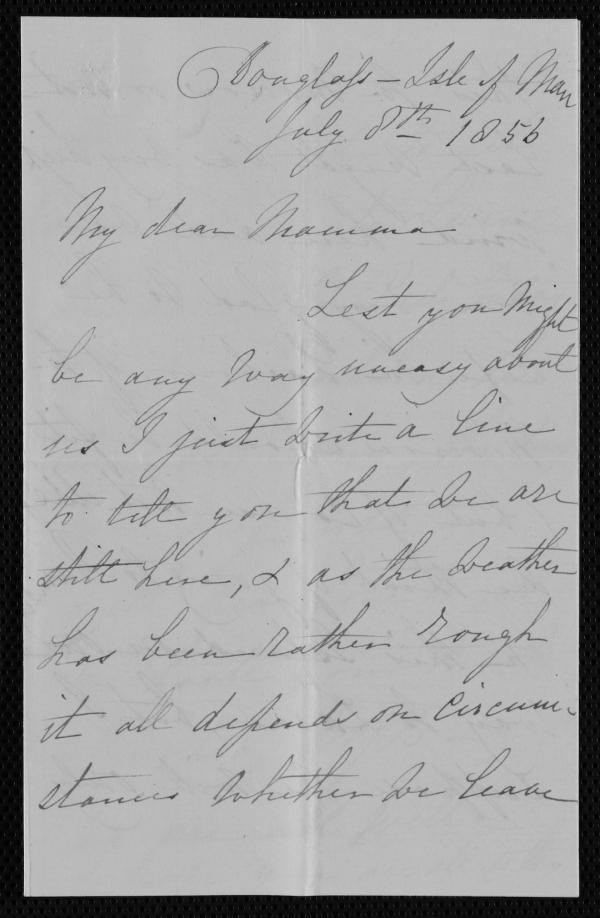 Douglass - Isle of Man
July 8th 1856
My dear Mamma
Lest you might
be any way uneasy about
us I just write a line
to tell you that we are
still here, & as the weather
has been rather rough
it all depends on circum-
stances whether we leave